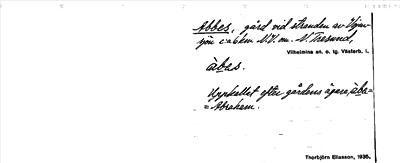 Abbes, gård vid stranden av Vojm-
sjön c:a 6 km N.V. om N. Tresund,
Vilhelmina sn. o. tg. Västerb. l.
àbas.
Uppkallet efter gårdens ägare, àba-
= Abraham.
Thorbjörn Eliasson, 1935.